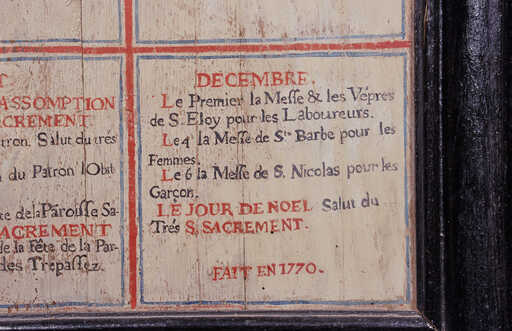 T.
ASSOMPTION
ACREMENT.
tron. Salut du trés
u du Patron l'Obit
te de la Paroisse Sa-
ACREMENT
de la Fête de la Par-
des Trepassez.
DECEMBRE.
Le Premier la Messe & les Vépres
de S. Eloy pour les Laboureurs.
Le 4 la Messe de Ste Barbe pour les
Femmes.
Le 6 la Messe de S. Nicolas pour les
Garçon.
LE JOUR DE NOEL Salut du
Trés S. SACREMENT.
FAIT EN 1770.